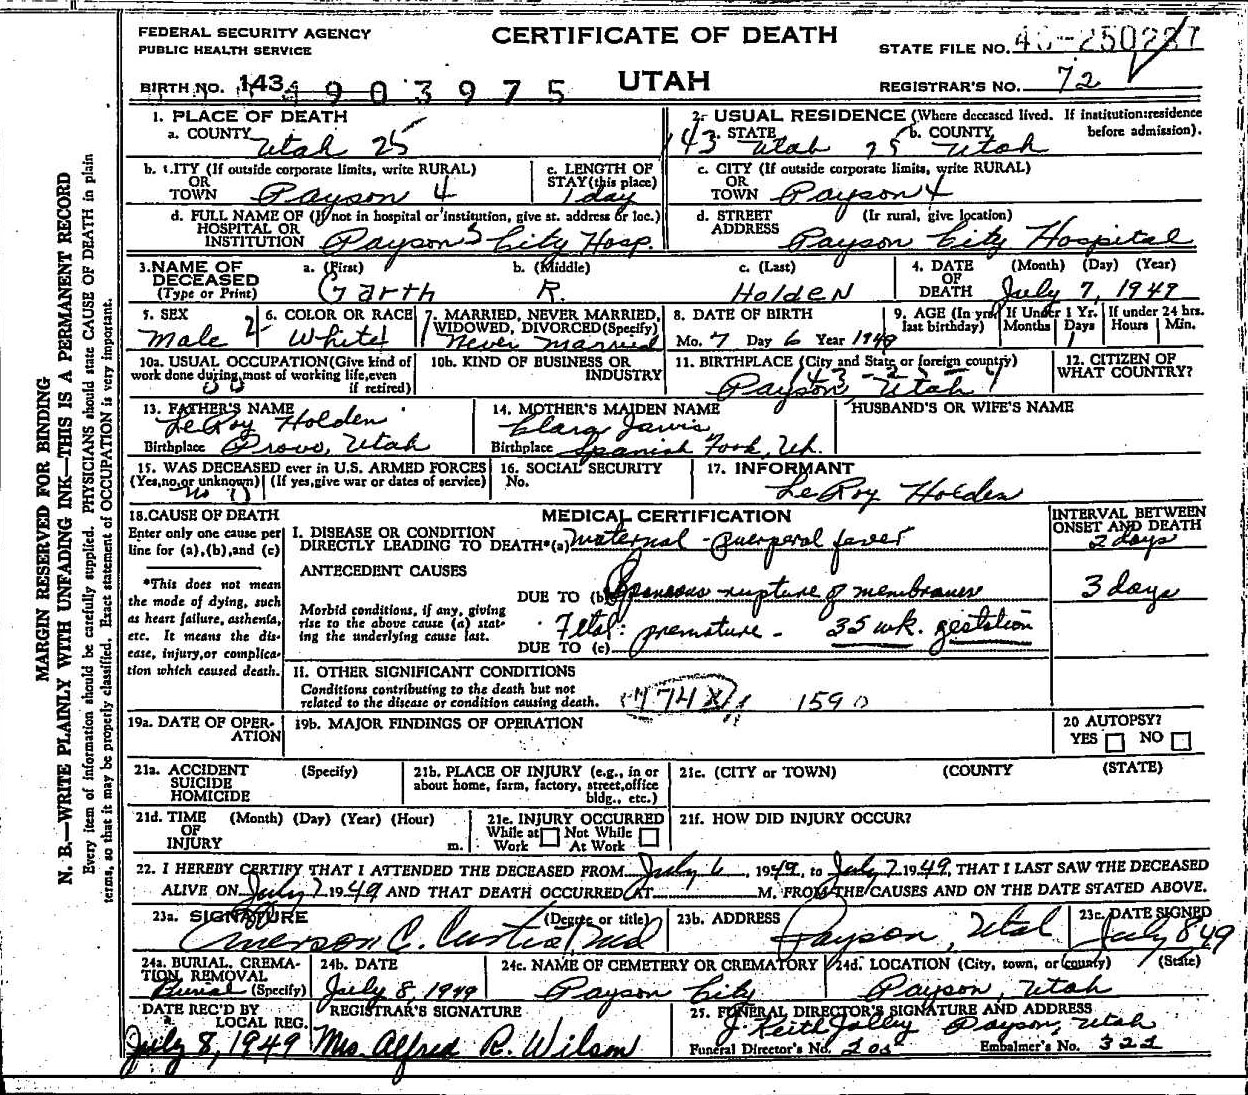 FEDERAL SECURITY AGENCY
PUBLIC HEALTH SERVICE
CERTIFICATE OF DEATH
STATE FILE NO.
BIRTH NO. 143 4903975
UTAH
REGISTRAR'S NO. 72
MARGIN RESERVED FOR BINDING
N. B.—WRITE PLAINLY WITH UNFADING INK—THIS IS A PERMANENT RECORD
Every item of information should be carefully supplied. PHYSICIANS should state CAUSE OF DEATH in plain
terms, so that it may be properly classified. Exact statement of OCCUPATION is very important.
1. PLACE OF DEATH
a. COUNTY Utah 25
2. USUAL RESIDENCE (Where deceased lived. If institution:residence before admission).
143 a. STATE Utah 25 b. COUNTY Utah
b. CITY (If outside corporate limits, write RURAL)
OR
TOWN Payson 4
c. LENGTH OF
STAY (this place)
1 day
c. CITY (If outside corporate limits, write RURAL)
OR
TOWN Payson 4
d. FULL NAME OF (If not in hospital or institution, give st. address or loc.)
HOSPITAL OR
INSTITUTION Payson 5 City Hosp.
d. STREET (If rural, give location)
ADDRESS Payson City Hospital
3. NAME OF
DECEASED
(Type or Print)
a. (First) b. (Middle) c. (Last)
Garth R. Holden
4. DATE (Month) (Day) (Year)
OF
DEATH July 7, 1949
5. SEX
Male 2
6. COLOR OR RACE
White 1
7. MARRIED, NEVER MARRIED,
WIDOWED, DIVORCED(Specify)
Never Married
8. DATE OF BIRTH
Mo. 7 Day 6 Year 1949
9. AGE (In yrs. last birthday)
If Under 1 Yr. Months Days 1
If under 24 hrs. Hours Min.
10a. USUAL OCCUPATION(Give kind of
work done during most of working life, even
if retired)
10b. KIND OF BUSINESS OR
INDUSTRY
11. BIRTHPLACE (City and State or foreign country)
Payson, Utah
12. CITIZEN OF
WHAT COUNTRY?
13. FATHER'S NAME
LeRoy Holden
Birthplace Provo, Utah
14. MOTHER'S MAIDEN NAME
Clara Jarvis
Birthplace Spanish Fork, Ut.
HUSBAND'S OR WIFE'S NAME
15. WAS DECEASED ever in U.S. ARMED FORCES
(Yes,no,or unknown) (If yes,give war or dates of service)
No 0
16. SOCIAL SECURITY
No.
17. INFORMANT
LeRoy Holden
18.CAUSE OF DEATH
Enter only one cause per
line for (a),(b),and (c)
*This does not mean
the mode of dying, such
as heart failure, asthenia,
etc. It means the dis-
ease, injury,or complica-
tion which caused death.
MEDICAL CERTIFICATION
INTERVAL BETWEEN
ONSET AND DEATH
I. DISEASE OR CONDITION
DIRECTLY LEADING TO DEATH*(a) Maternal - puerperal fever 2 days
ANTECEDENT CAUSES
DUE TO (b) rupture of membranes 3 days
Morbid conditions, if any, giving
rise to the above cause (a) stat-
ing the underlying cause last.
Fetal: premature - 35 wk. gestation
DUE TO (c)
II. OTHER SIGNIFICANT CONDITIONS
Conditions contributing to the death but not
related to the disease or condition causing death.
774X 1590
19a. DATE OF OPER-
ATION
19b. MAJOR FINDINGS OF OPERATION
20 AUTOPSY?
YES NO
21a. ACCIDENT (Specify)
SUICIDE
HOMICIDE
21b. PLACE OF INJURY (e.g., in or
about home, farm, factory, street,office
bldg., etc.)
21c. (CITY or TOWN) (COUNTY) (STATE)
21d. TIME (Month) (Day) (Year) (Hour)
OF
INJURY m.
21e. INJURY OCCURRED
While at Work Not While At Work
21f. HOW DID INJURY OCCUR?
22. I HEREBY CERTIFY THAT I ATTENDED THE DECEASED FROM July 6, 1949, to July 7 1949, THAT I LAST SAW THE DECEASED
ALIVE ON July 7 1949 AND THAT DEATH OCCURRED AT M. FROM THE CAUSES AND ON THE DATE STATED ABOVE.
23a. SIGNATURE (Degree or title)
Emerson C. Curtis Md
23b. ADDRESS
Payson, Utah
23c. DATE SIGNED
July 8 49
24a. BURIAL, CREMA-
TION, REMOVAL
Burial (Specify)
24b. DATE
July 8, 1949
24c. NAME OF CEMETERY OR CREMATORY
Payson City
24d. LOCATION (City, town, or county) (State)
Payson, Utah
DATE REC'D BY
LOCAL REG.
July 8, 1949
REGISTRAR'S SIGNATURE
Mrs. Alfred R. Wilson
25. FUNERAL DIRECTOR'S SIGNATURE AND ADDRESS
J. Keith Jolley Payson, Utah
Funeral Director's No. 203 Embalmer's No. 322